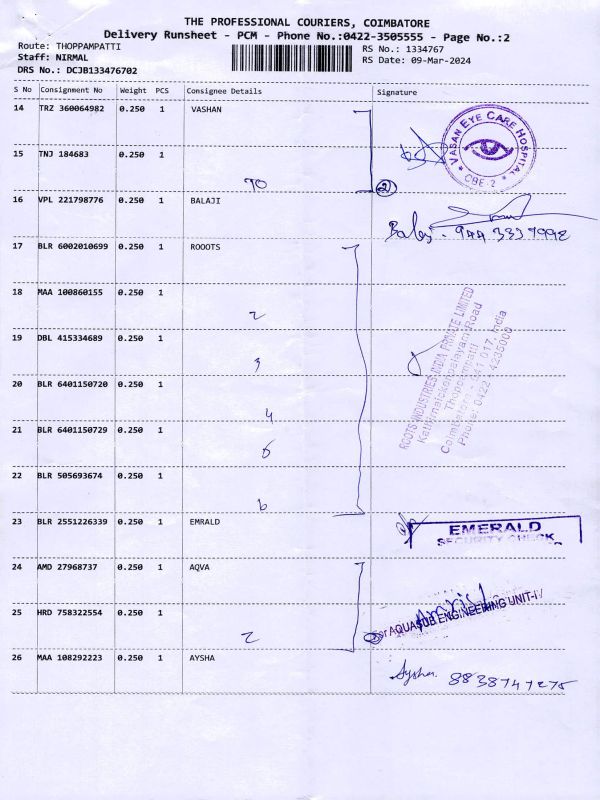 THE PROFESSIONAL COURIERS, COIMBATORE
Delivery Runsheet - PCM - Phone No.:0422-3505555 - Page No.:2
Route: THOPPAMPATTI
RS No.: 1334767
Staff: NIRMAL
RS Date: 09-Mar-2024
DRS No.: DCJB133476702
S No Consignment No Weight PCS Consignee Details Signature
14 TRZ 360064982 0.250 1 VASHAN
VASAN EYE CARE HOSPITAL
* CBE-2 *
15 TNJ 184683 0.250 1
2
16 VPL 221798776 0.250 1 BALAJI
17 BLR 6002010699 0.250 1 ROOOTS
18 MAA 100860155 0.250 1
2
19 DBL 415334689 0.250 1
3
20 BLR 6401150720 0.250 1
4
21 BLR 6401150729 0.250 1
5
22 BLR 505693674 0.250 1
6
ROOTS INDUSTRIES INDIA PRIVATE LIMITED
Thoppampatti
Coimbatore - 641 017. India
Phone: 0422 - 4235000
23 BLR 2551226339 0.250 1 EMRALD
EMERALD
SECURITY CHECK
24 AMD 27968737 0.250 1 AQVA
25 HRD 758322554 0.250 1
2
For AQUASUB ENGINEERING UNIT-I
26 MAA 108292223 0.250 1 AYSHA
Aysha. 8838747275